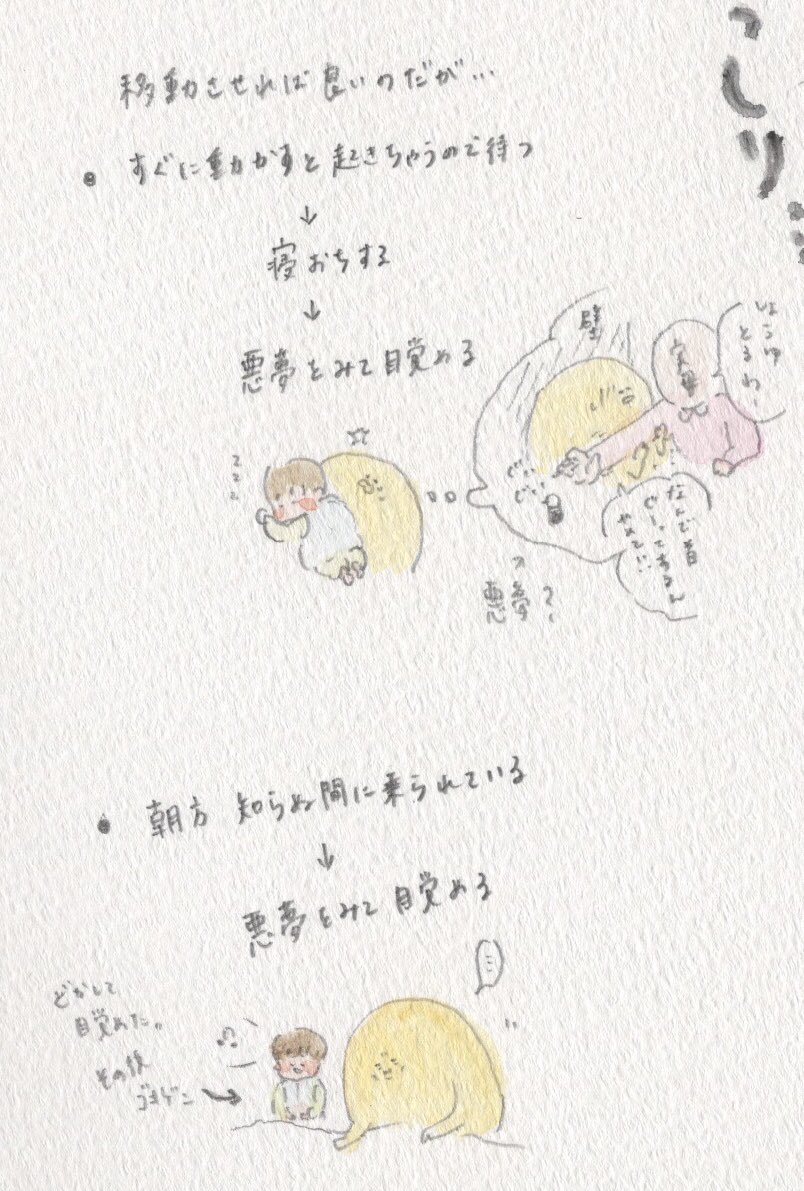 こしり…
移動させれば良いのだが…
・ すぐに動かすと起きちゃうので待つ
↓
寝おちする
↓
悪夢をみて目覚める
zzz
壁
実母
しょうゆ
とるわー
ぐい
ぐい
なんで首
ぐーってするん
やめて…
悪夢?
・ 朝方 知らぬ間に乗られている
↓
悪夢をみて目覚める
どかして
目覚めた。
その後
ゴキゲン
…